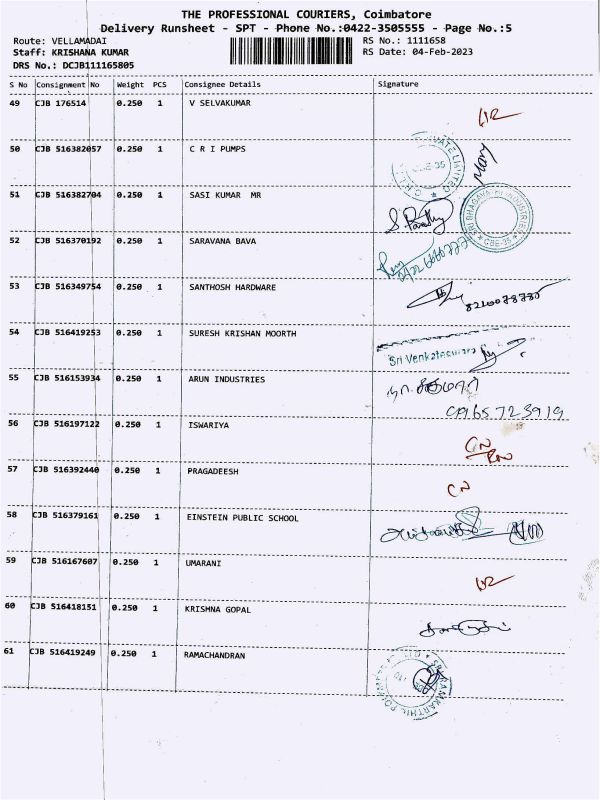 THE PROFESSIONAL COURIERS, Coimbatore
Delivery Runsheet - SPT - Phone No.:0422-3505555 - Page No.:5
Route: VELLAMADAI RS No.: 1111658
Staff: KRISHANA KUMAR RS Date: 04-Feb-2023
DRS No.: DCJB111165805
S No Consignment No Weight PCS Consignee Details Signature
49 CJB 176514 0.250 1 V SELVAKUMAR
50 CJB 516382057 0.250 1 C R I PUMPS
PRIVATE LIMITED CBE-35
51 CJB 516382704 0.250 1 SASI KUMAR MR
SRI BHAGAVATHI INDUSTRIES CBE-35
52 CJB 516370192 0.250 1 SARAVANA BAVA
53 CJB 516349754 0.250 1 SANTHOSH HARDWARE
54 CJB 516419253 0.250 1 SURESH KRISHAN MOORTH
Sri Venkateswara
55 CJB 516153934 0.250 1 ARUN INDUSTRIES
56 CJB 516197122 0.250 1 ISWARIYA
CN
57 CJB 516392440 0.250 1 PRAGADEESH
CN
58 CJB 516379161 0.250 1 EINSTEIN PUBLIC SCHOOL
59 CJB 516167607 0.250 1 UMARANI
60 CJB 516418151 0.250 1 KRISHNA GOPAL
61 CJB 516419249 0.250 1 RAMACHANDRAN